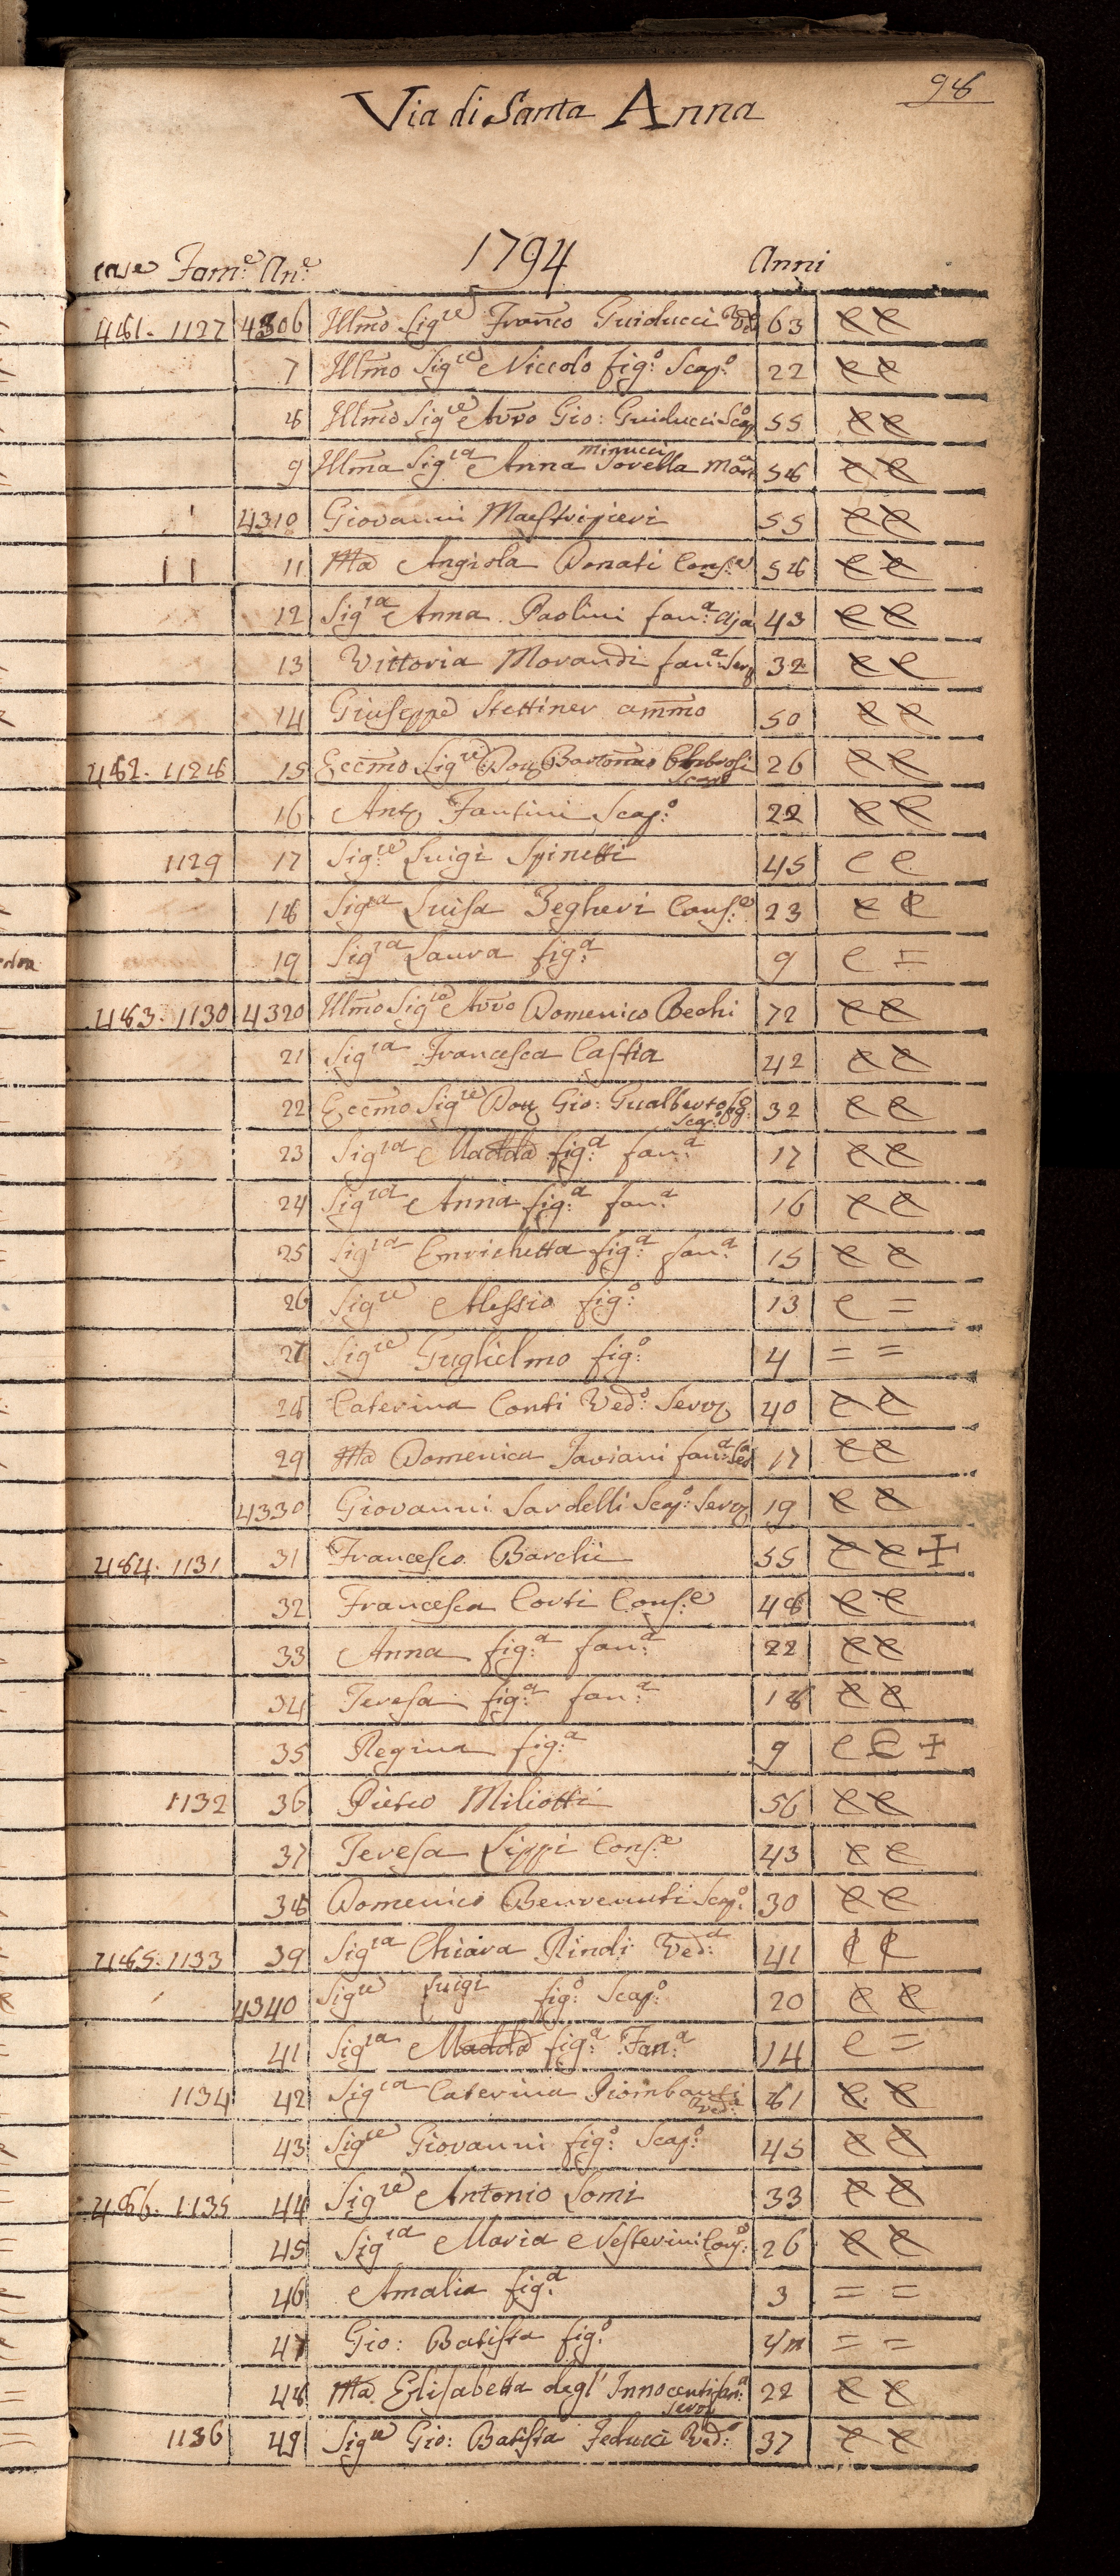 98
Via di Santa Anna
1794
case Fam:e An:e Anni
481. 1127 4306 Illmo Sigre Franco Guiducci Vedo 63 e e
7 Illmo Sigre Niccolo fig:o Scap:o 22 e e
8 Illmo Sigre Avvo Gio: Guiducci Scapo 55 e e
9 Illma Sigra Anna Minucci Sorella Mar:a 58 e e
4310 Giovanni Maestripieri 55 e e
11 Ma Angiola Donati Cons:e 58 e e
12 Sigra Anna Paolini fan:a Aja 43 e e
13 Vittoria Morandi fan:a Serv 32 e e
14 Giuseppe Stettiner ammo 50 e e
482. 1128 15 Eccmo Sigre Dou Bartomeo Ambrosi Scapo 26 e e
16 Anto Fantini Scap:o 22 e e
1129 17 Sig:re Luigi Spinetti 45 e e
18 Sigra Luisa Begheri Cons:e 23 e e
19 Sigra Laura fig:a 9 e =
483. 1130 4320 Illmo Sigre Avvo Domenico Bechi 72 e e
21 Sigra Francesca Casfia 42 e e
22 Eccmo Sigre Dou Gio: Gualberto fig:o Scap:o 32 e e
23 Sigra Madda fig:a fan:a 17 e e
24 Sigra Anna fig:a fan:a 16 e e
25 Sigra Enrichetta fig:a fan:a 15 e e
26 Sigre Alessio fig:o 13 e =
27 Sigre Guglielmo fig:o 4 = =
28 Caterina Conti Ved:a Serv 40 e e
29 Ma Domenica Taviani fan:a Sera 17 e e
4330 Giovanni Sardelli Scap:o Serv 19 e e
484. 1131 31 Francesco Barchi 55 e e +
32 Francesca Corti Cons:e 48 e e
33 Anna fig:a fan:a 22 e e
34 Teresa fig:a fan:a 18 e e
35 Regina fig:a 9 e e +
1132 36 Pietro Miliotti 56 e e
37 Teresa Lippi Cons:e 43 e e
38 Domenico Benvenuti Scap:o 30 e e
485. 1133 39 Sigra Chiara Rindi Ved:a 41 e e
4340 Sigre Luigi fig:o Scap:o 20 e e
41 Sigra Madda fig:a Fan:a 14 e =
1134 42 Sigra Caterina Piombanti Ved:a 81 e e
43 Sigre Giovanni fig:o Scap:o 45 e e
486. 1135 44 Sigre Antonio Lomi 33 e e
45 Sigra Maria Nesterini Cons:e 26 e e
46 Amalia fig:a 3 = =
47 Gio: Batista fig:o 4m = =
48 Ma Elisabetta degl' Innocenti fan:a Serv 22 e e
1136 49 Sigre Gio: Batista Feducci Ved:o 37 e e